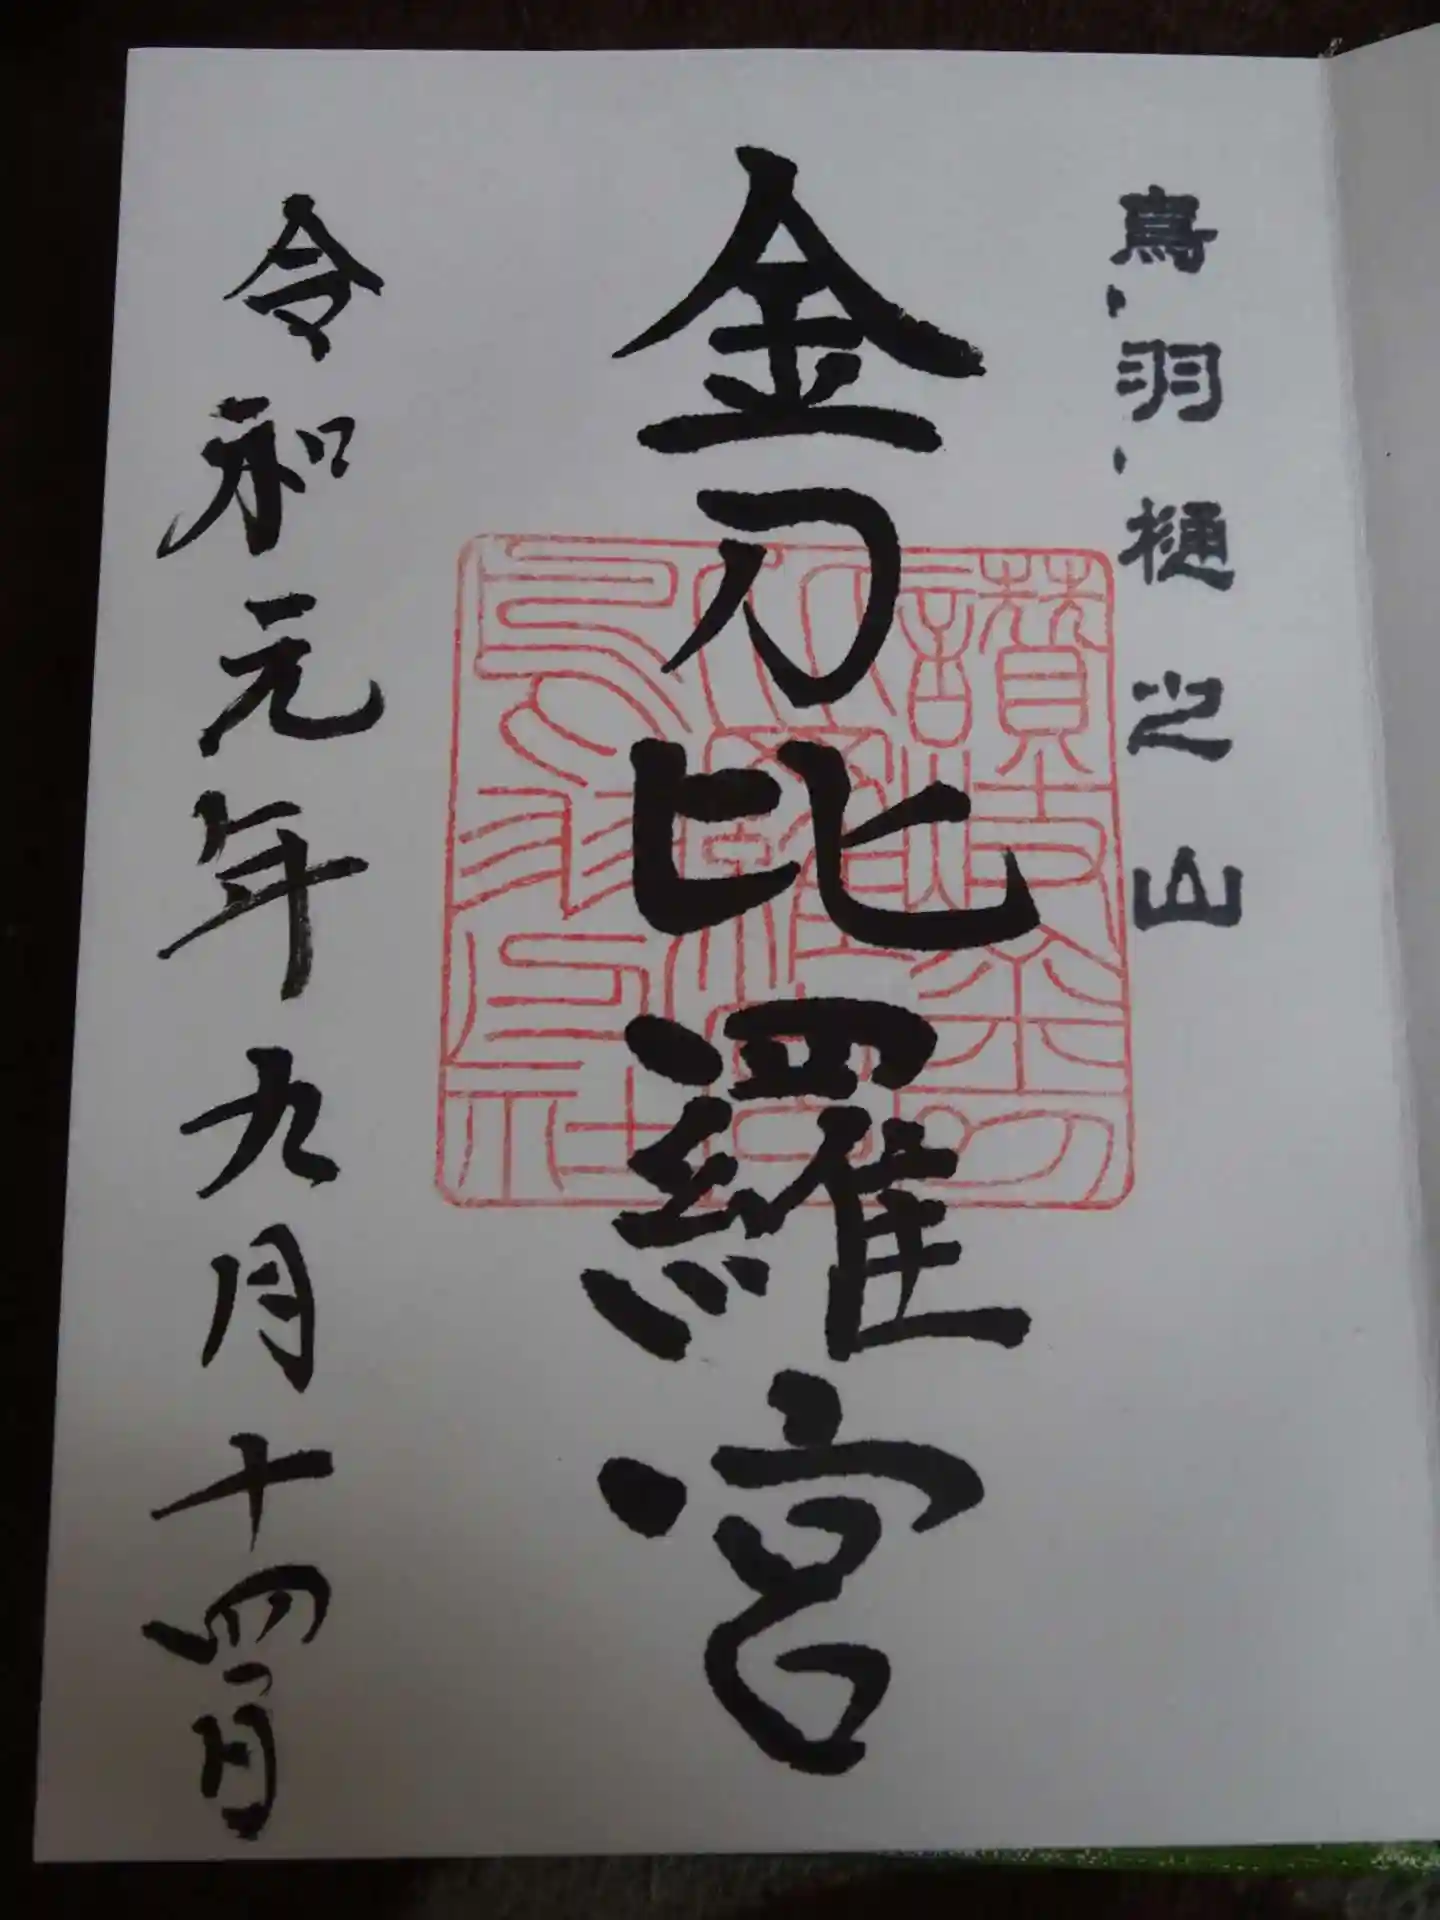 鳥羽樋之山
金刀比羅宮
令和元年九月十四日
讃岐金刀
比羅宮